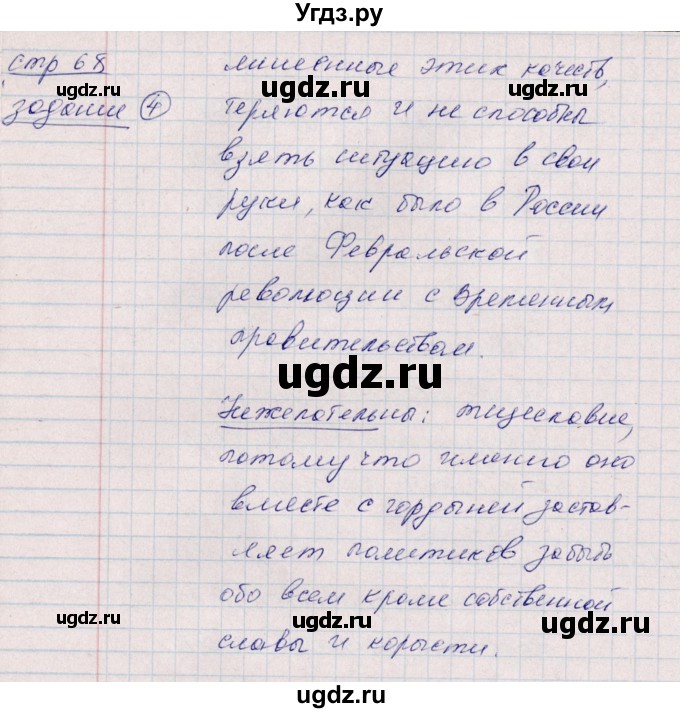 Угдз.ру
стр 68
задание 4
лишенные этик качеств,
теряются и не способны
взять ситуацию в свои
руки, как было в России
после Февральской
революции с Временным
правительством.
Нежелательны: тщеславие,
потому что именно оно
вместе с гордыней застав-
ляет политиков забыть
обо всем кроме собственной
славы и корысти.
ugdz.ru
ugdz.ru
ugdz.ru
ugdz.ru
ugdz.ru
ugdz.ru
ugdz.ru
ugdz.ru
ugdz.ru
ugdz.ru
ugdz.ru